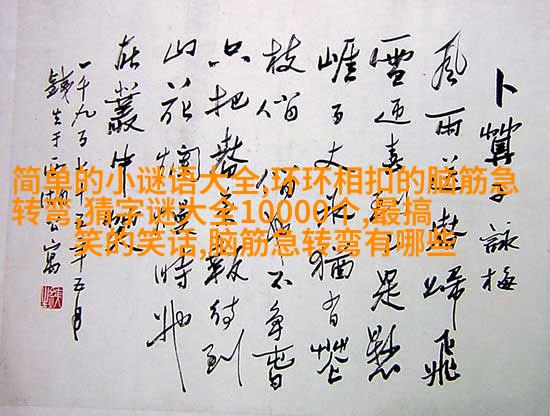 卜算子 詠梅
風雨送春歸飛
雪迎春到已是懸
崖百丈冰猶有花
枝俏俏也不爭春
只把春來報待到
山花爛漫時她
在叢中笑
一千九百七十五年 月
于西湖公寓
简单的小谜语大全,环环相扣的脑筋急
转弯,猜字谜大全10000个,最搞
笑的笑话,脑筋急转弯有哪些